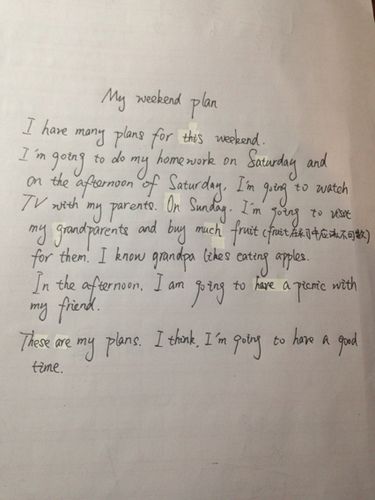 My weekend plan
I have many plans for this weekend.
I'm going to do my homework on Saturday and
on the afternoon of Saturday, I'm going to watch
TV with my parents. On Sunday. I'm going to visit
my grandparents and buy much fruit (fruit在句中应该不可数)
for them. I know grandpa likes eating apples.
In the afternoon, I am going to have a picnic with
my friend.
These are my plans. I think, I'm going to have a good
time.